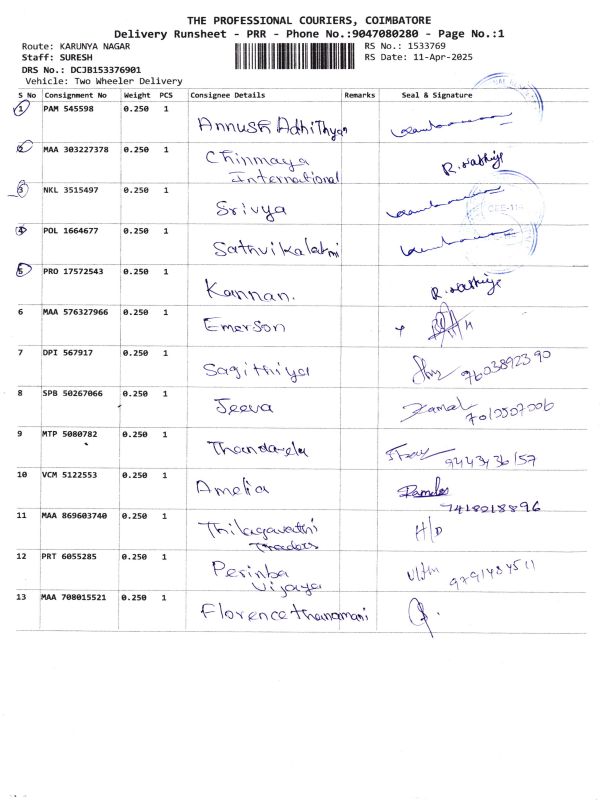 THE PROFESSIONAL COURIERS, COIMBATORE
Delivery Runsheet - PRR - Phone No.:9047080280 - Page No.:1
Route: KARUNYA NAGAR
RS No.: 1533769
Staff: SURESH
RS Date: 11-Apr-2025
DRS No.: DCJB153376901
Vehicle: Two Wheeler Delivery
S No Consignment No Weight PCS Consignee Details Remarks Seal & Signature
1 PAM 545598 0.250 1 Annush Adhithyan
2 MAA 303227378 0.250 1 Chinmaya
International
3 NKL 3515497 0.250 1 Srivya
4 POL 1664677 0.250 1 Sathvikalakmi
5 PRO 17572543 0.250 1 Kannan.
6 MAA 576327966 0.250 1 Emerson
7 DPI 567917 0.250 1 Sagithiya 9603892390
8 SPB 50267066 0.250 1 Jeeva
9 MTP 5080782 0.250 1 Thandavelu 9443436157
10 VCM 5122553 0.250 1 Amelia
7418018896
11 MAA 869603740 0.250 1 Thilagavathi H/D
Traders
12 PRT 6055285 0.250 1 Perinba
Vijaya
13 MAA 708015521 0.250 1 Florencethanamani